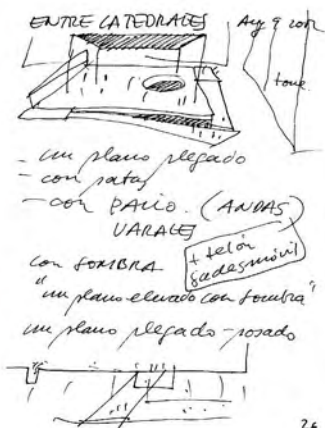 ENTRE CATEDRALES
Aug 9 2002
torre
- un plano plegado
- con patas
- con PALIO. (ANDAS)
VARALES
con SOMBRA
+ telón
Cádiz móvil
"un plano elevado con sombra"
un plano plegado - posado
26